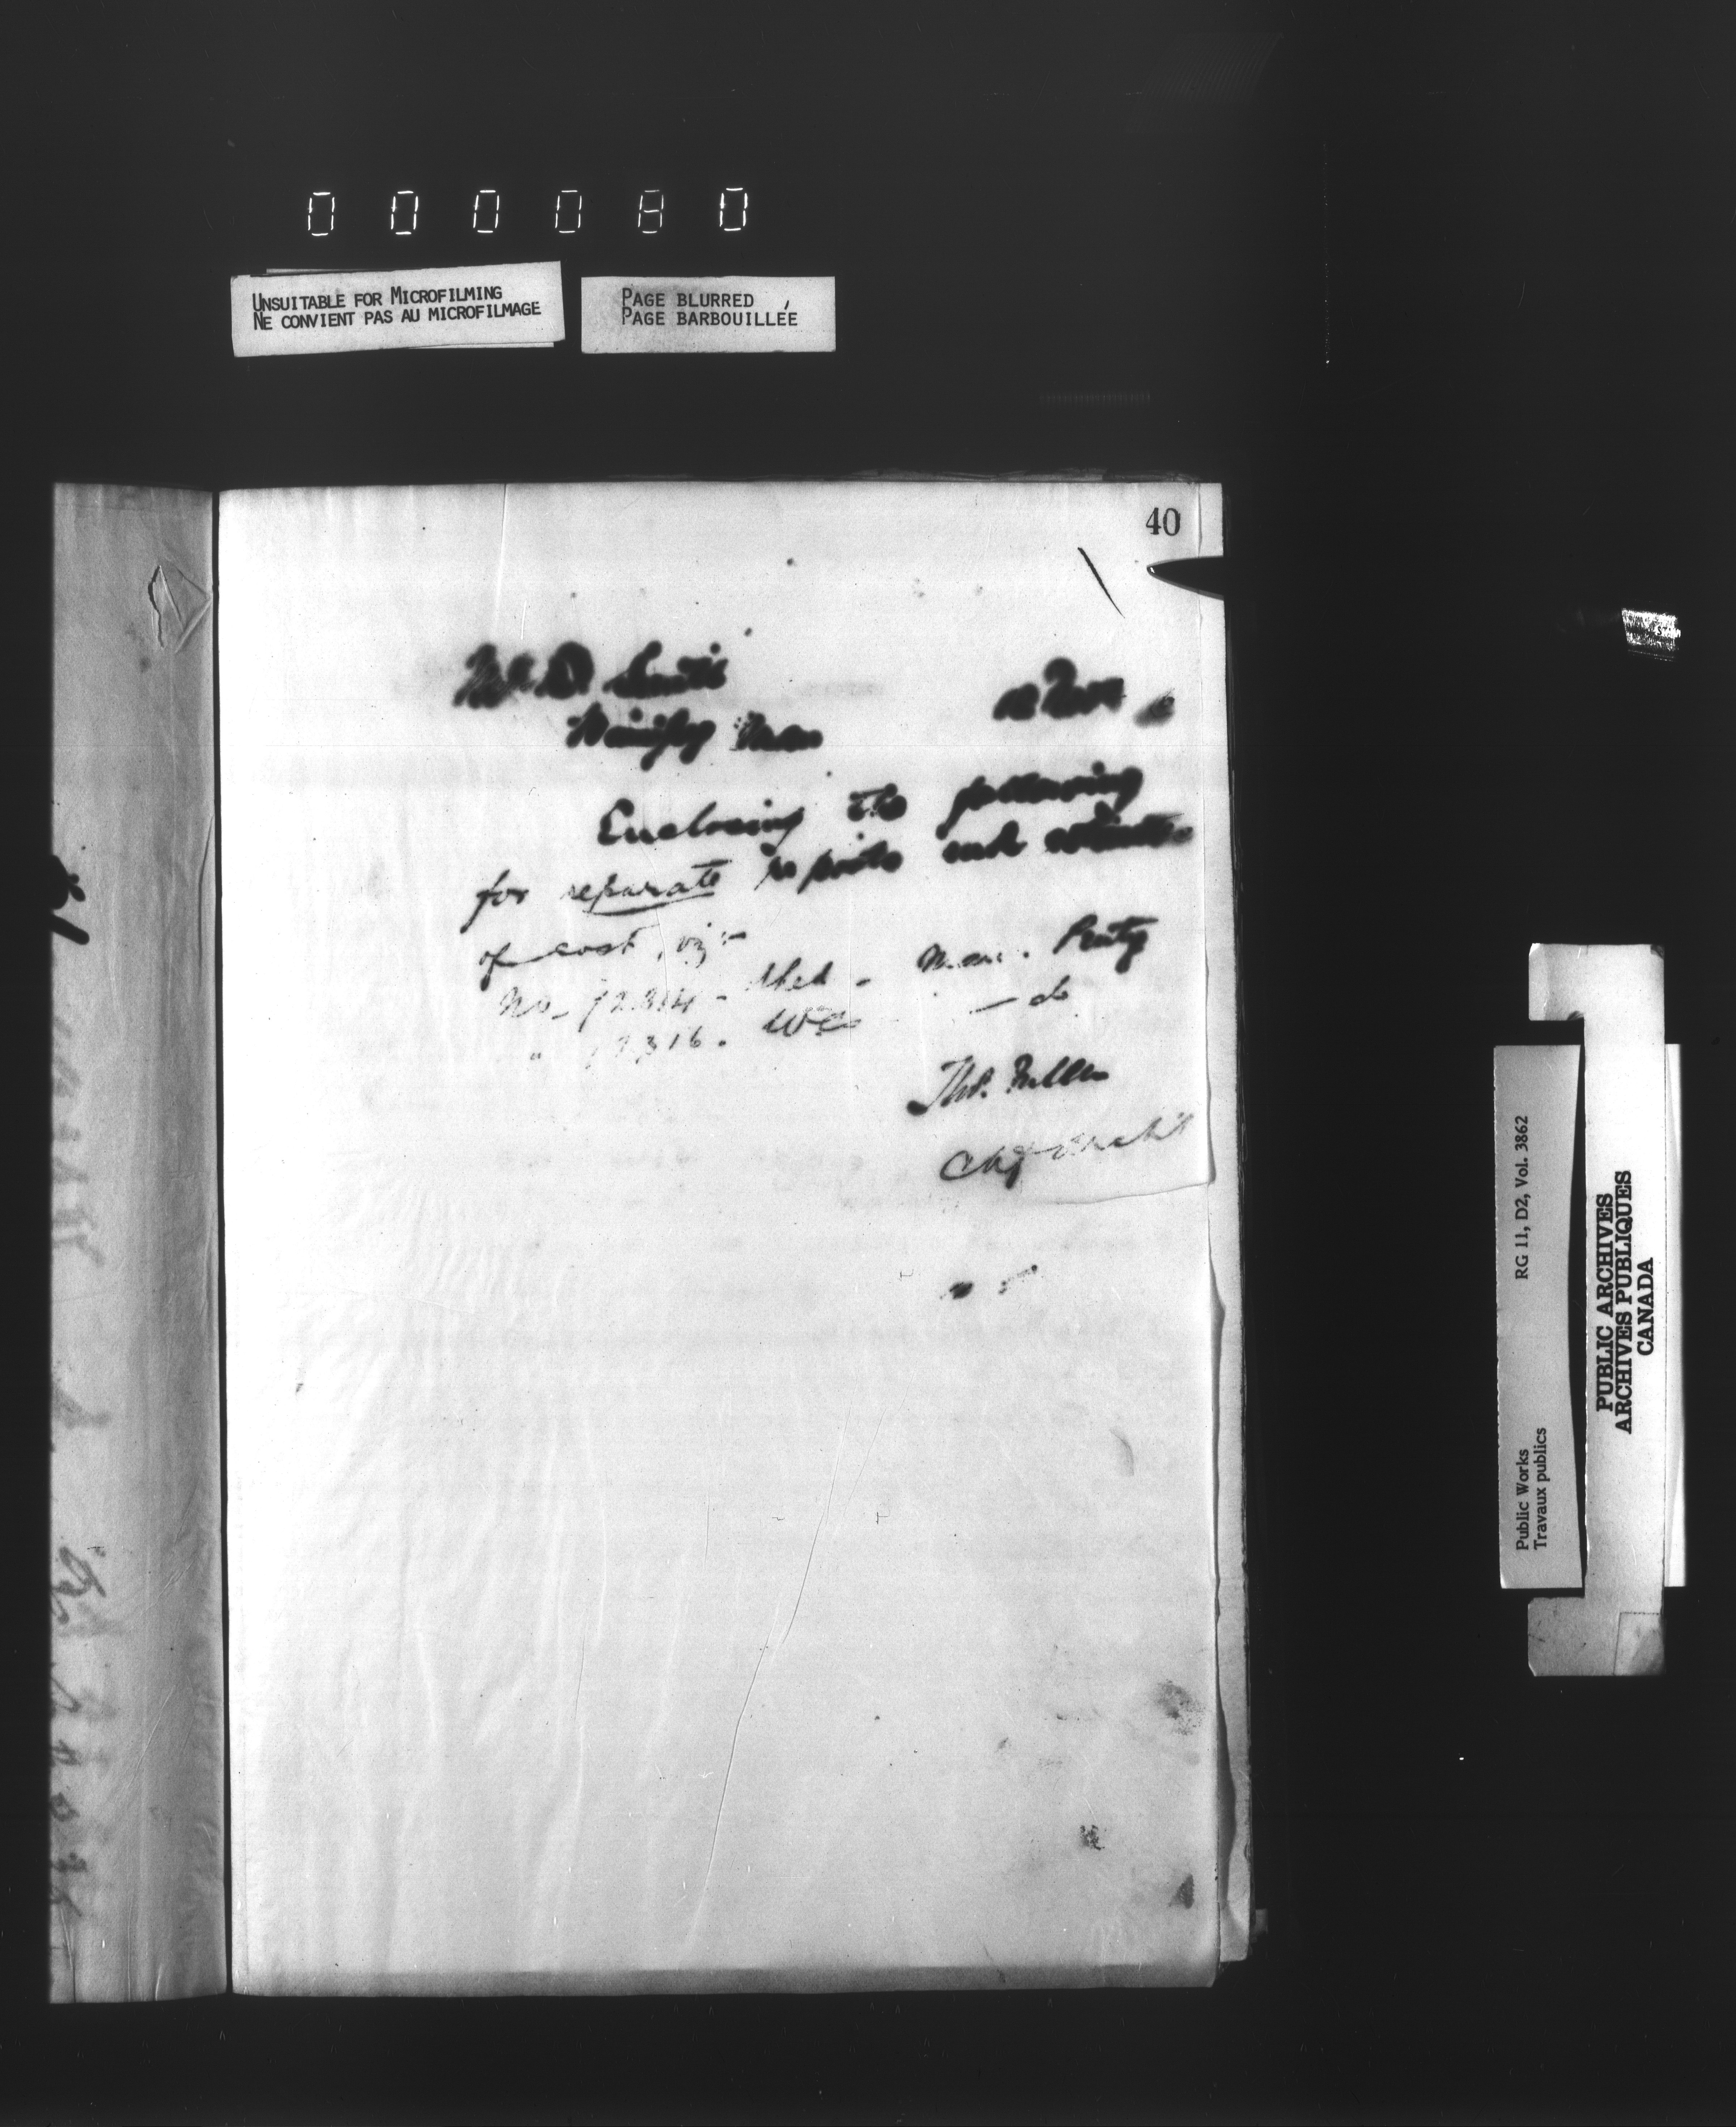 000080
UNSUITABLE FOR MICROFILMING
NE CONVIENT PAS AU MICROFILMAGE
PAGE BLURRED
PAGE BARBOUILLÉE
40
Smith
Winnipeg Man
Enclosing the following
for separate reports and estimates
of cost, viz:-
No - Shed - Man. Penty
" 316. WC - do
Thos. Fuller
Chf Archt
Public Works
Travaux publics
RG 11, D2, Vol. 3862
PUBLIC ARCHIVES
ARCHIVES PUBLIQUES
CANADA